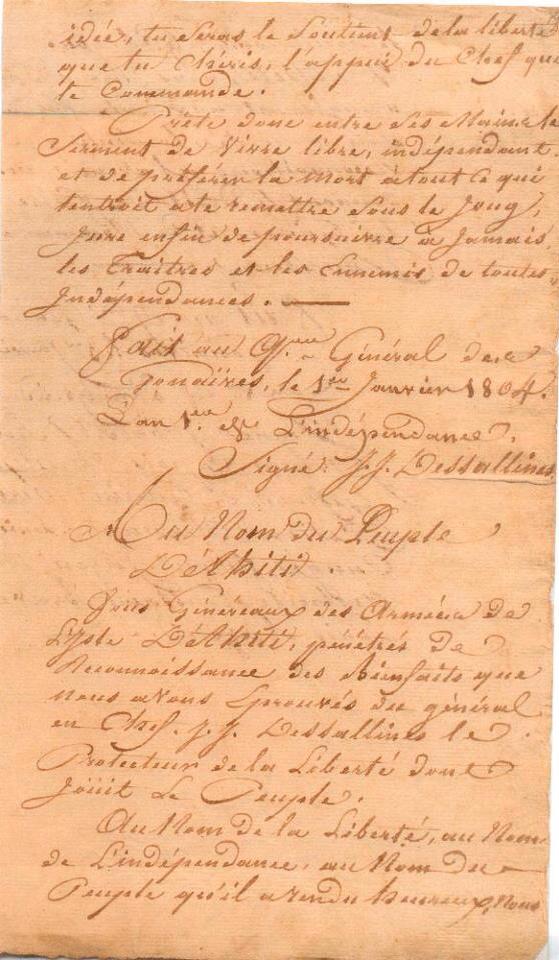 idée, tu seras le Soutient de la liberté
que tu Chéris, l'appui du Chef que
te Commande.
Prête donc entre Ses Mains le
Serment de Vivre libre, indépendant
et de préférer la Mort à tout Ce qui
tentroit a te remettre Sous le Joug,
Jure enfin de poursuivre à Jamais
les Traitres et les Ennemis de toutes
Indépendances.
Fait au Qer Général des
Gonaïves, le 1er Janvier 1804.
L'an 1er de L'indépendance.
Signé J. J. Dessallines
Au Nom du Peuple
D'ethiti
Nous Généreaux des Armées de
L'Isle D'ethiti, pénétrés de
Reconnoissance des Bienfaits que
nous avons Eprouvés du général
en Chef. J. J. Dessallines le
Protecteur de la Liberté dont
Jouit Le Peuple.
Au Nom de la Liberté, au Nom
de L'indépendance, au Nom du
Peuple qu'il a rendu heureux, Nous